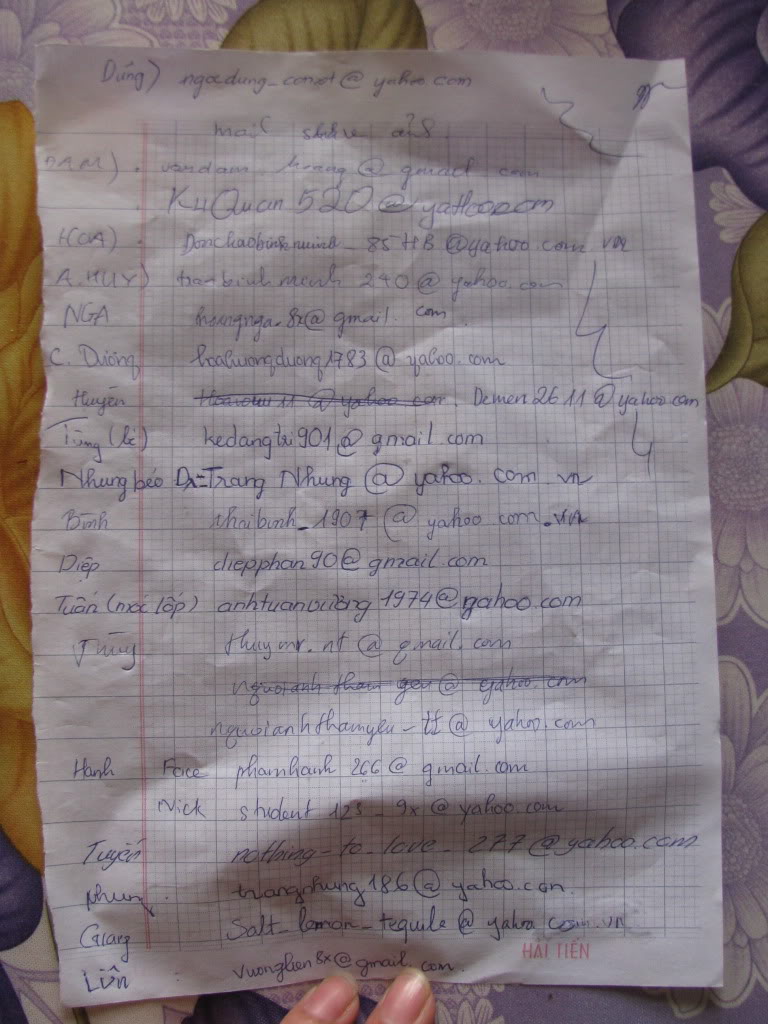 Dũng) ngocdung_conet@yahoo.com
mail share ảnh
ĐAM). vandam. @gmail com
KuQuan520@yahoo.com
HOA). _85HB@yahoo.com.vn
A.HUY) tranbinhminh 240@yahoo.com
NGA hungnga_8x@gmail.com
C. Dương hoahuongduong1783@yahoo.com
Huyền @yahoo.com. Demen2611@yahoo.com
Tùng (lé) kedangtri901@gmail.com
Nhung béo Trang Nhung@yahoo.com.vn
Bình thaibinh_1907@yahoo com.vn
Diệp diepphan90@gmail.com
Tuấn (mọc lốp) anhtuanvuong1974@yahoo.com
Thùy thuymr.nt@gmail.com
nguoianh tham yeu@yahoo.com
nguoianhthamyeu_tt@yahoo.com
Hạnh Face phamhanh266@gmail.com
Nick student 123_9x@yahoo.com
Tuyến nothing_to_love_277@yahoo.com
Nhung. trangnhung186@yahoo.com.
Giang Salt_lemon_tequile@yahoo com.vn
HẢI TIẾN
Liên vuonglien8x@gmail.com.